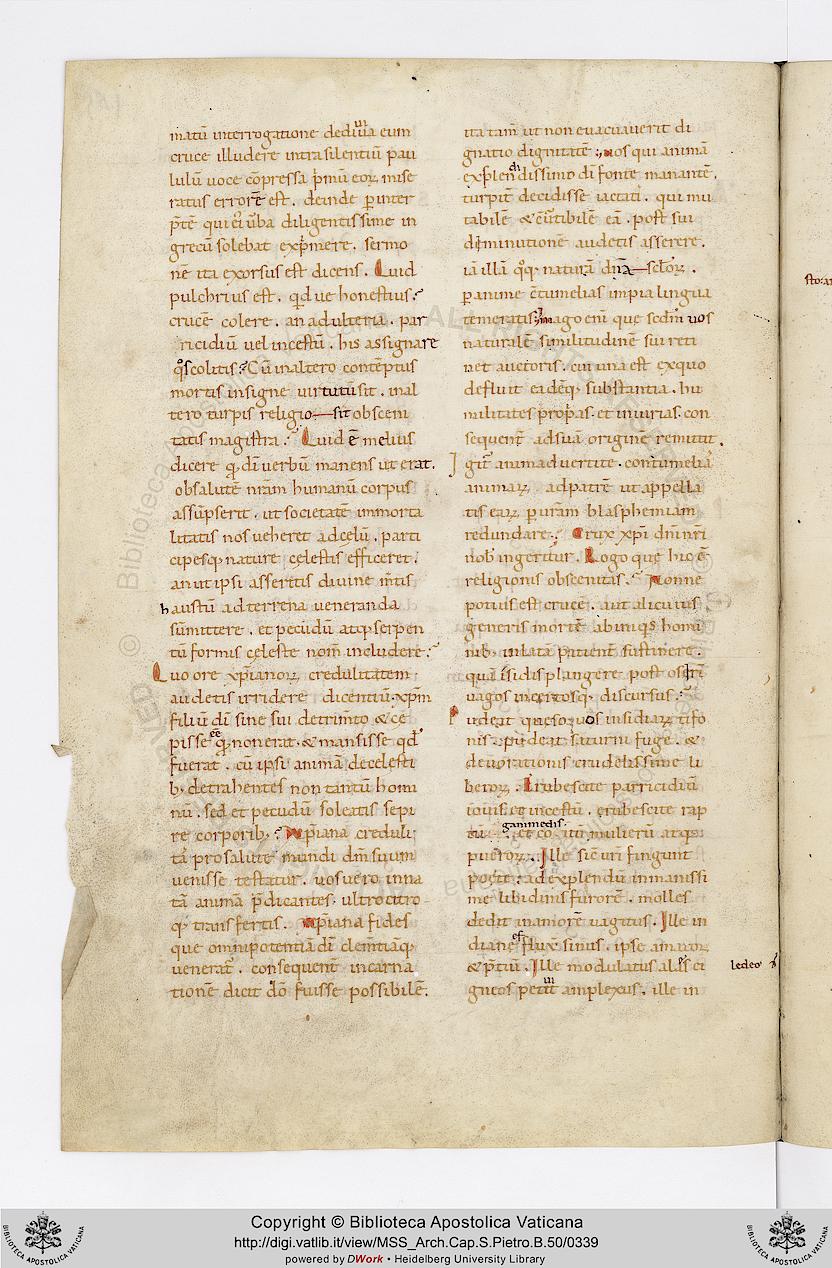 matū interrogatione dediuia eum
cruce illudere intra silentiū pau
lulū uoce cōpressa p̄mū eoꝝ mise
ratus errorē est . deinde ꝑ inter
p̄tē qui ei ūba diligentissime in
grecū solebat exp̄mere . sermo
nē ita exorsus est dicens . Quid
pulchrius est . qd ue honestius
crucē colere . an adulteria . par
ricidiū uel incestū . his assignare
qos colitis : Cū in altero contēptus
mortis insigne uirtutū sit . in al
tero turpis religio sit obsceni
tatis magistra . Quid ē melius
dicere qd dī uerbū manens ut erat .
ob salutē nrām humanū corpus
assūpserit . ut societatē immorta
litatis nos ueheret ad celū . parti
cipesq; nature celestis efficeret .
an ut ipsi asseritis diuine m̄tis
haustū ad terrena ueneranda
sūmittere . et pecudū atq; serpen
tū formis celeste nom̄ includere .
Quo ore xp̄ianoꝝ credulitatem
audetis irridere dicentiū xp̄m
filiū dī sine sui detrim̄to & ce
pisse ee qd non erat . & mansisse qd
fuerat . cū ipsi animā de celesti
b; detrahentes non tantū homi
nū . sed et pecudū soleatis sepi
re corporib; . xp̄iana creduli
tas pro salute mundi dm̄ suum
uenisse testatur . uos uero inna
tā animā p̄dicantes . ultro citro
q; transfertis . xp̄iana fides
que omnipotentiā dī clem̄tiāq;
ueneratr . consequent̄ incarna
tionē dicit dō fuisse possibilē .
ita tam̄ ut non euacuauerit di
gnatio dignitatē : uos qui animā
ex splendidissimo dī fonte manantē .
turpit̄ decidisse iactatis . qui mu
tabilē & cōūtibilē eā . post sui
diminutionē audetis asserere .
iā illā qoq; naturā dn̄a scl̄oꝝ .
ꝑ anime cōtumelias impia lingua
temeratis . Imago enī que scdm̄ uos
naturalē similitudinē sui reti
net auctoris . cui una est ex quo
defluit eadēq; substantia . hu
militates prop̄as . et iniurias con
sequent̄ ad suā originē remittit .
Igit̄ animaduertite . contumeliā
animaꝝ . ad patrē ut appella
tis eaꝝ ꝑ uram̄ blasphemiam
redundare . Crux xp̄i dm̄ nr̄i
nob̄ ingeritur . Rogo que hic ē
religionis obscenitas . Nonne
potius est crucē . aut alicuius
generis mortē ab iniq̄s homi
nib; inlatā patient̄ sustinere .
quā isidis plangere post osirī
uagos incertosq; discursus .
Pudeat queso uos insidiaꝝ tifo
nis . pudeat saturni fuge . &
deuorationis crudelissime li
beroꝝ . Erubescite parricidiū
iouis et incestū . erubescite rap
ganimedis
tū . et coitū mulierū atq;
pueroꝝ . Ille sic uri fingunt
poete . ad explendū inmanissi
me libidinis furorē . molles
dedit in amorē uagitus . Ille in
diane efflux sinus . ipse amator
& p̄tiū . Ille modulatus alis ci
gneos petiuit amplexus . ille in
ledeos